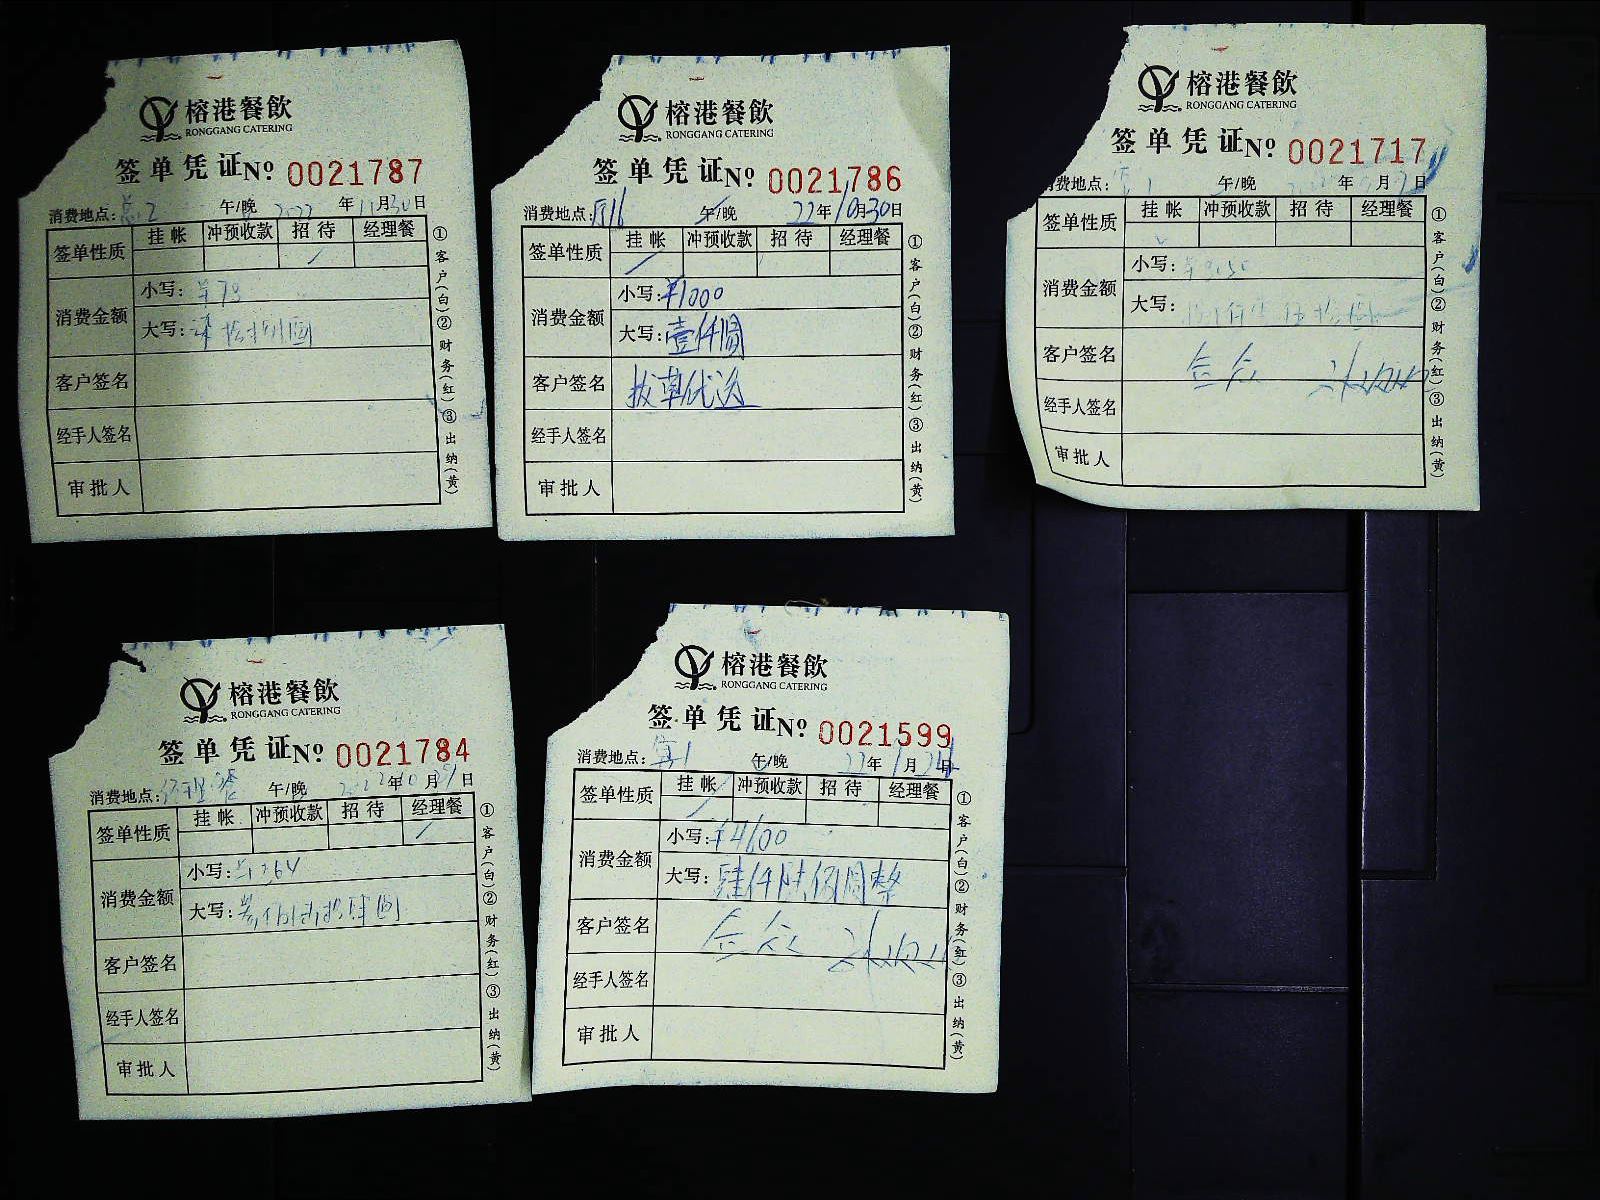 榕港餐飲
RONGGANG CATERING
签单凭证№ 0021787
消费地点: 2 午/晚 2022年11月30日
签单性质 挂帐 冲预收款 招待 经理餐
消费金额 小写:
大写:
客户签名
经手人签名
审批人
①客户(白)②财务(红)③出纳(黄)
榕港餐飲
RONGGANG CATERING
签单凭证№ 0021786
消费地点: 午/晚 22年10月30日
签单性质 挂帐 冲预收款 招待 经理餐
消费金额 小写:¥1000
大写:壹仟圆
客户签名
经手人签名
审批人
①客户(白)②财务(红)③出纳(黄)
榕港餐飲
RONGGANG CATERING
签单凭证№ 0021717
消费地点: 午/晚 年 月 日
签单性质 挂帐 冲预收款 招待 经理餐
消费金额 小写:
大写:
客户签名
经手人签名
审批人
①客户(白)②财务(红)③出纳(黄)
榕港餐飲
RONGGANG CATERING
签单凭证№ 0021784
消费地点:经理餐 午/晚 2022年10月 日
签单性质 挂帐 冲预收款 招待 经理餐
消费金额 小写:¥264
大写:
客户签名
经手人签名
审批人
①客户(白)②财务(红)③出纳(黄)
榕港餐飲
RONGGANG CATERING
签单凭证№ 0021599
消费地点: 午/晚 22年 月 日
签单性质 挂帐 冲预收款 招待 经理餐
消费金额 小写:¥4600
大写:肆仟陆佰圆整
客户签名
经手人签名
审批人
①客户(白)②财务(红)③出纳(黄)